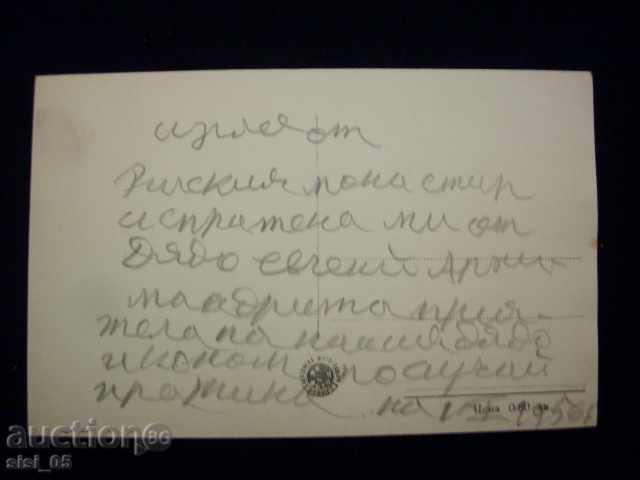 изглед от
Рилския монастир
испратена ми от
Дядо Евгений Архи-
мандрита прия-
теля на нашия дядо
иконом по случай
празника на 1956
Цена 0·80 лв.
auction BG
sisi_05